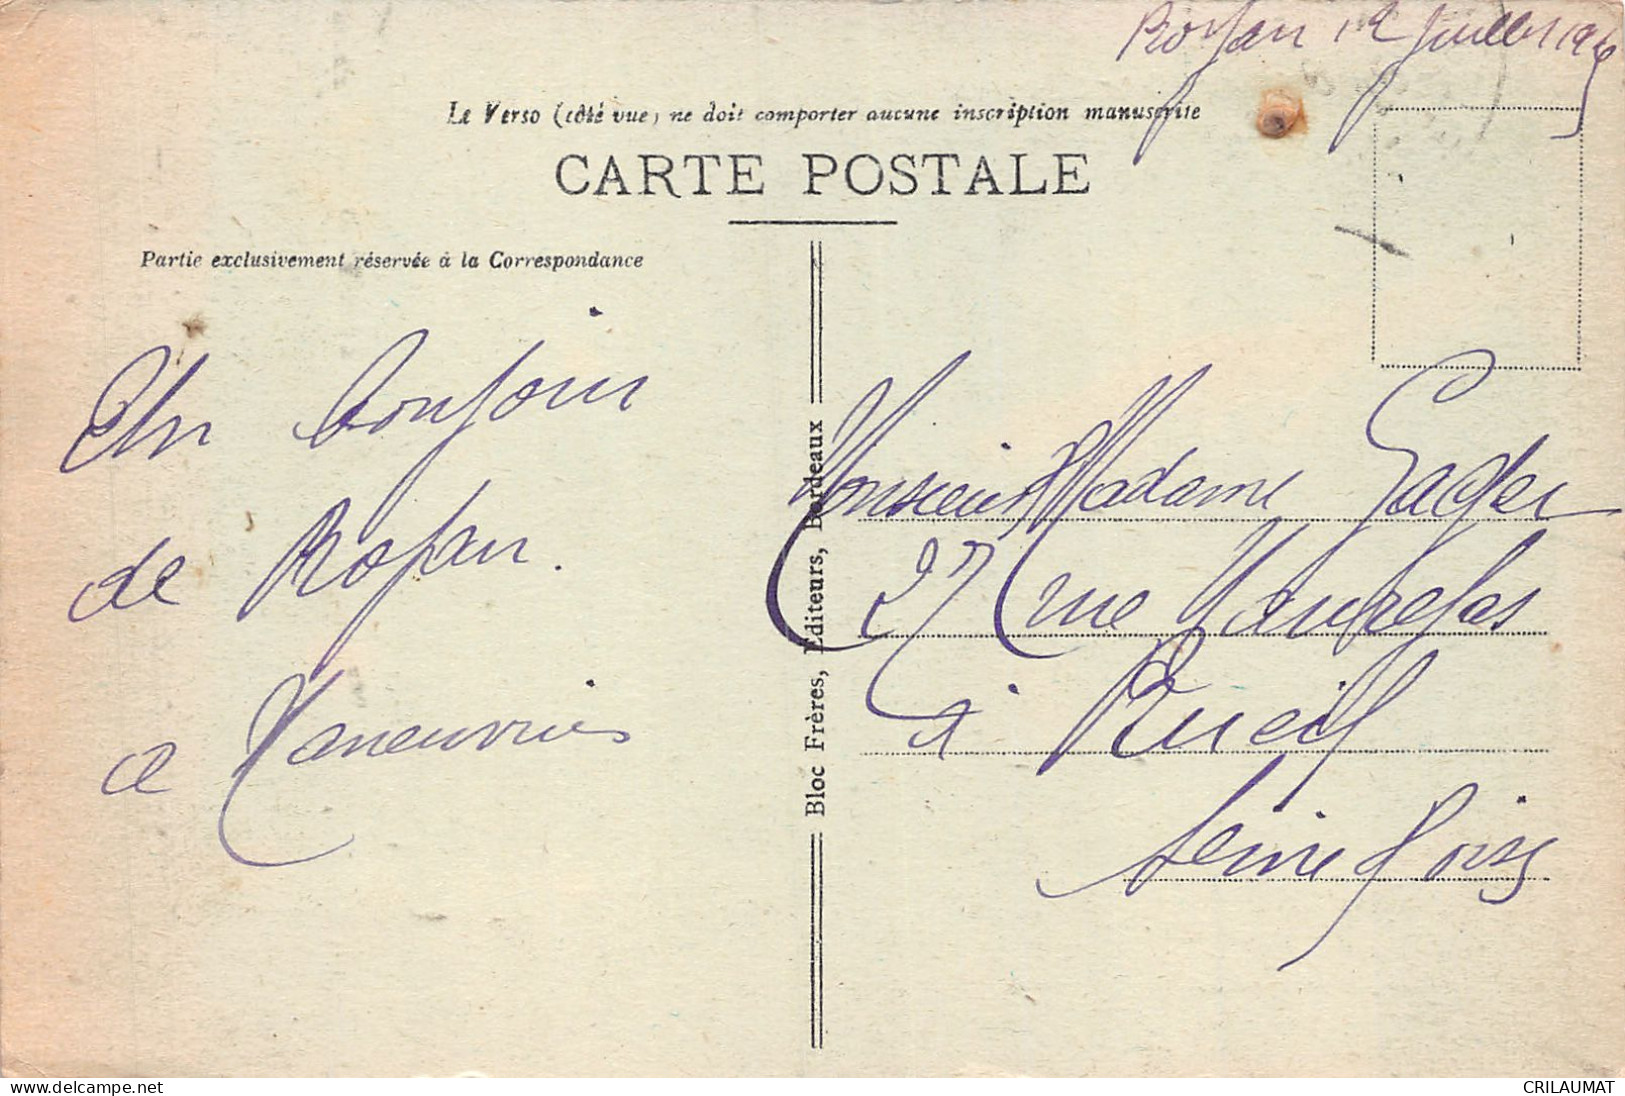 Royan 12 Juillet 192
Le Verso (côté vue) ne doit comporter aucune inscription manuscrite
CARTE POSTALE
Partie exclusivement réservée à la Correspondance
Un bonjour
de Royan.
Bloc Frères, Editeurs, Bordeaux
Monsieur Madame
27 rue
à Rueil
Seine &amp; Oise
www.delcampe.net
CRILAUMAT